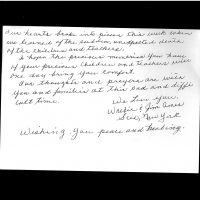 Our hearts broke into pieces this week when
we learned of the sudden unexpected deaths
of the children and teachers.
I hope the precious memories you have
of your precious children and teachers will
one day bring you comfort.
Our thoughts and prayers are with
you and families at this sad and diffi
cult time.
We Love You
& Jim
New York
Wishing you peace and healing.